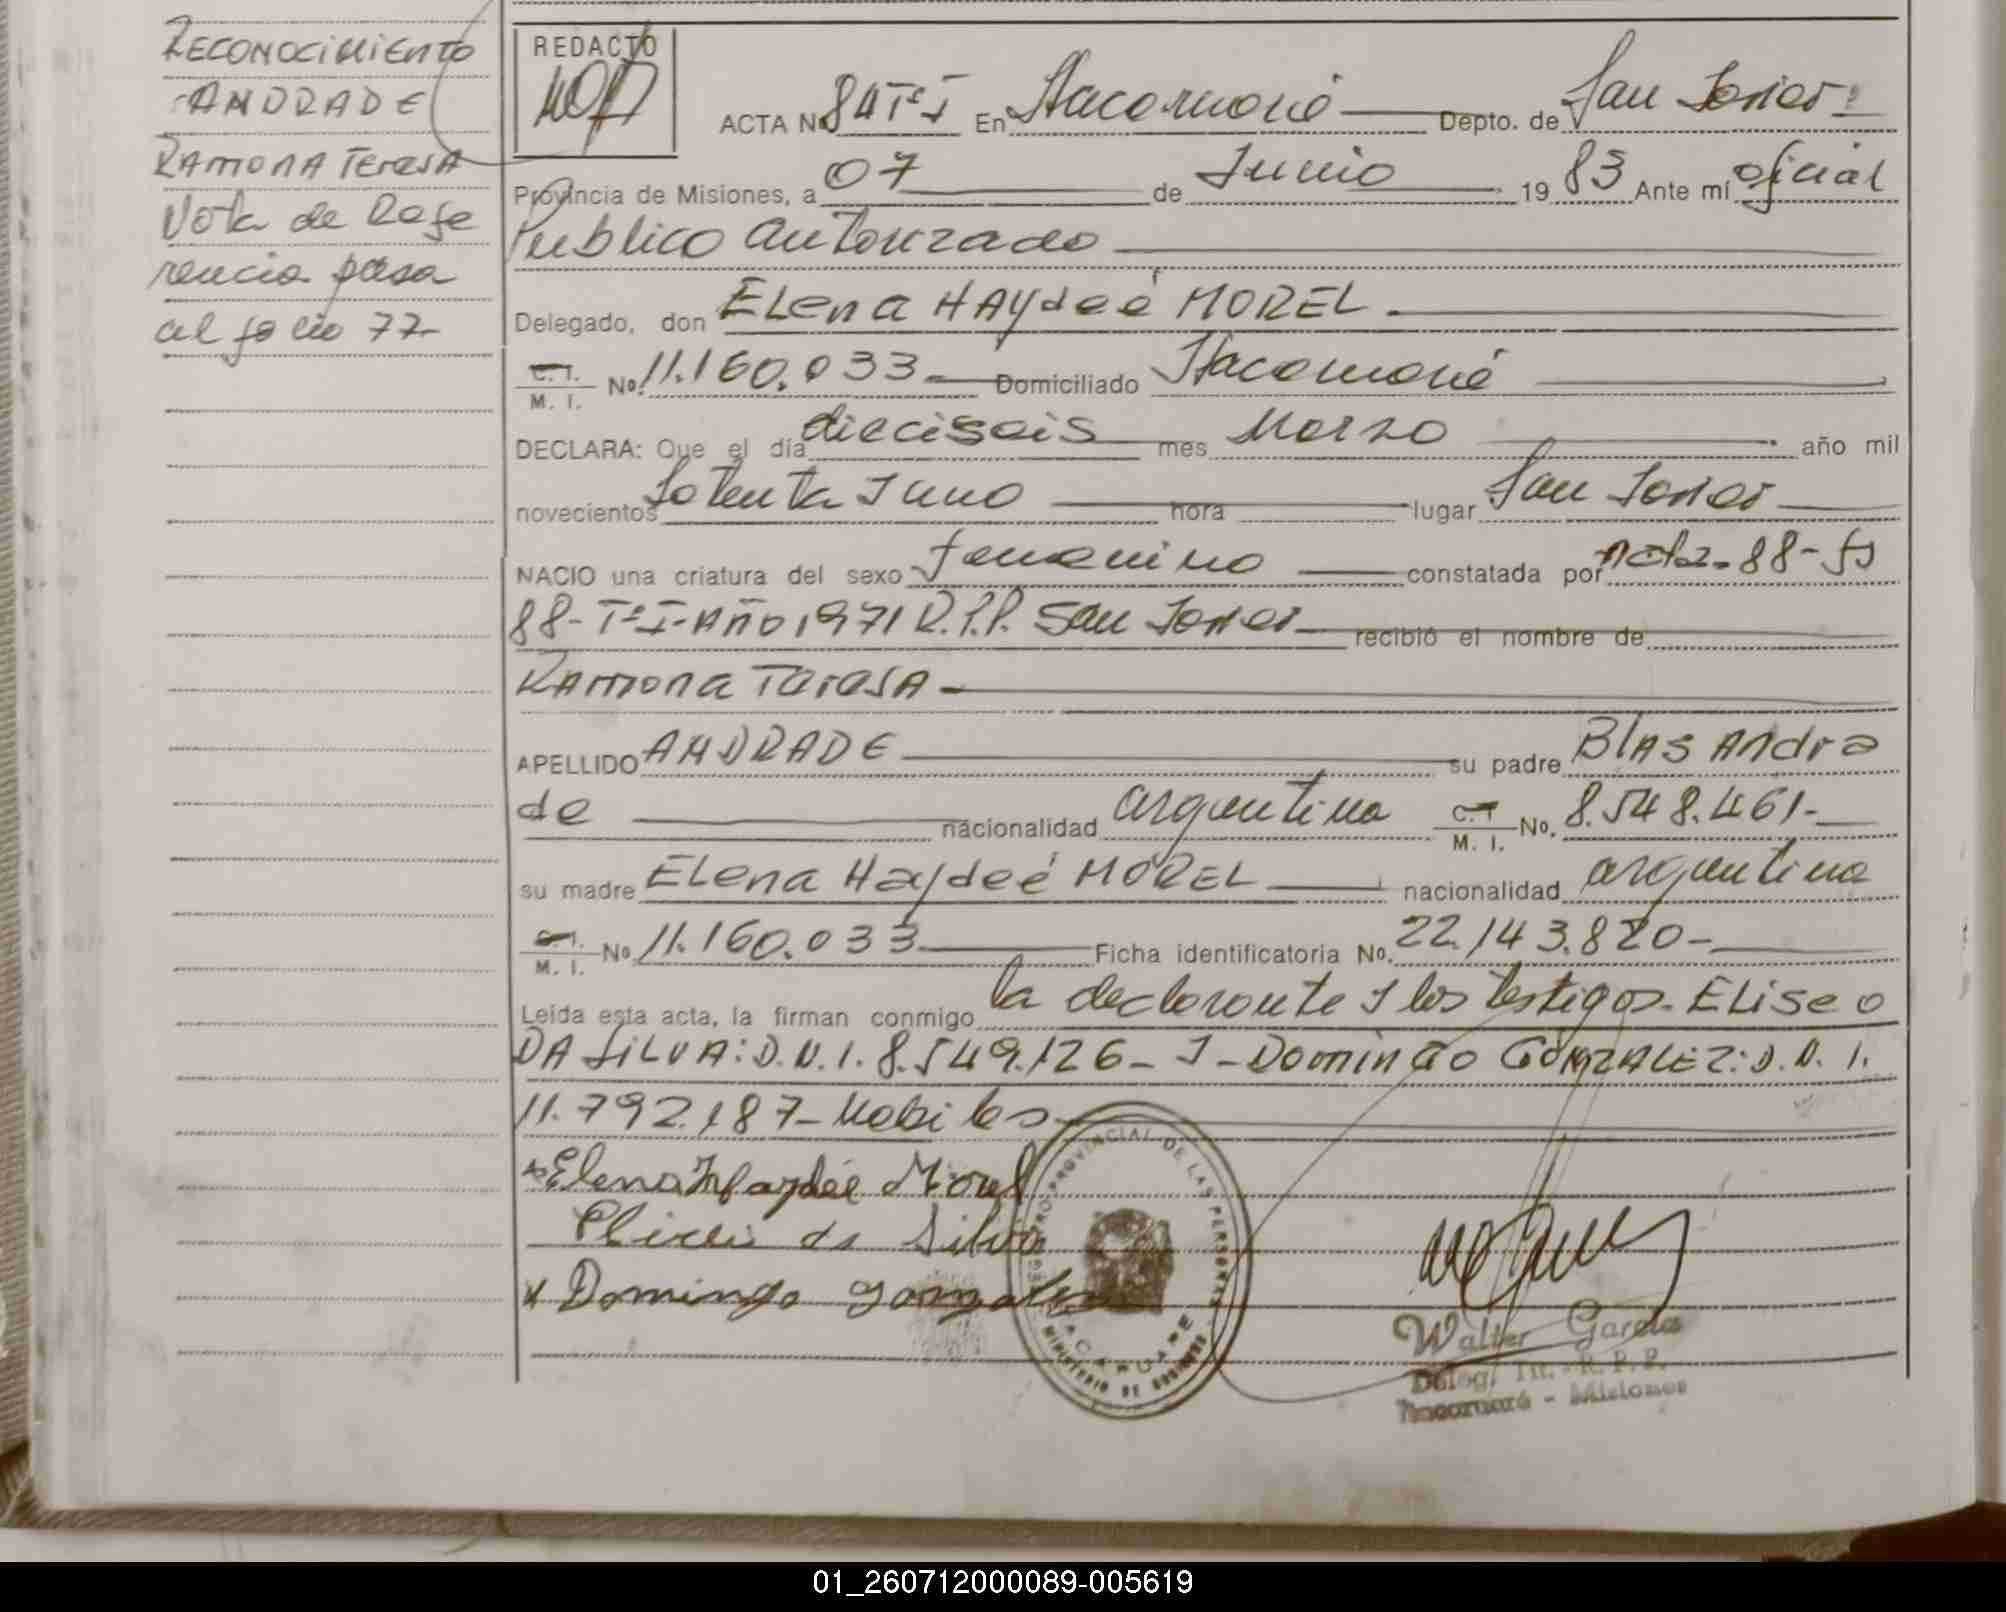 RECONOCIMIENTO
ANDRADE
RAMONA TeresA
Nota de Refe
rencia pasa
al folio 77-
REDACTO
ACTA No 84 Tº I En Itacaruaré Depto. de San Javier
Provincia de Misiones, a 07 de Junio 1983 Ante mí oficial
Publico autorizado
Delegado, don ELena HAydeé MOREL -
C. I. M. I. No. 11.160.033- Domiciliado Itacaruaré
DECLARA: Que el día dieciseis mes Marzo año mil
novecientos Setenta I uno hora lugar San Javier
NACIO una criatura del sexo femenino constatada por acta-88-fs
88-Tº I-AÑO 1971 R.P.P. San Javier recibió el nombre de
RAmona TeresA-
APELLIDO ANDRADE su padre BlAs Andra
de nacionalidad argentina C. I. M. I. No. 8.548.461-
su madre ELena Haydeé MOREL nacionalidad argentina
C. I. M. I. No. 11.160.033 Ficha identificatoria No. 22.143.820-
Leída esta acta, la firman conmigo la declarante I los testigos. ELiseo
DA SiLVA: D.N.I. 8.549.126- I -Domingo GONZALEZ: D.N.I.
11.792.187- Habiles
Elena Haydée Morel
da Silva
x Domingo Gonzalez
REGISTRO PROVINCIAL DE LAS PERSONAS
ITACARUARE
MINISTERIO DE GOBIERNO
Walter García
Deleg. Tit. - R. P. P.
Itacaruaré - Misiones
01_260712000089-005619